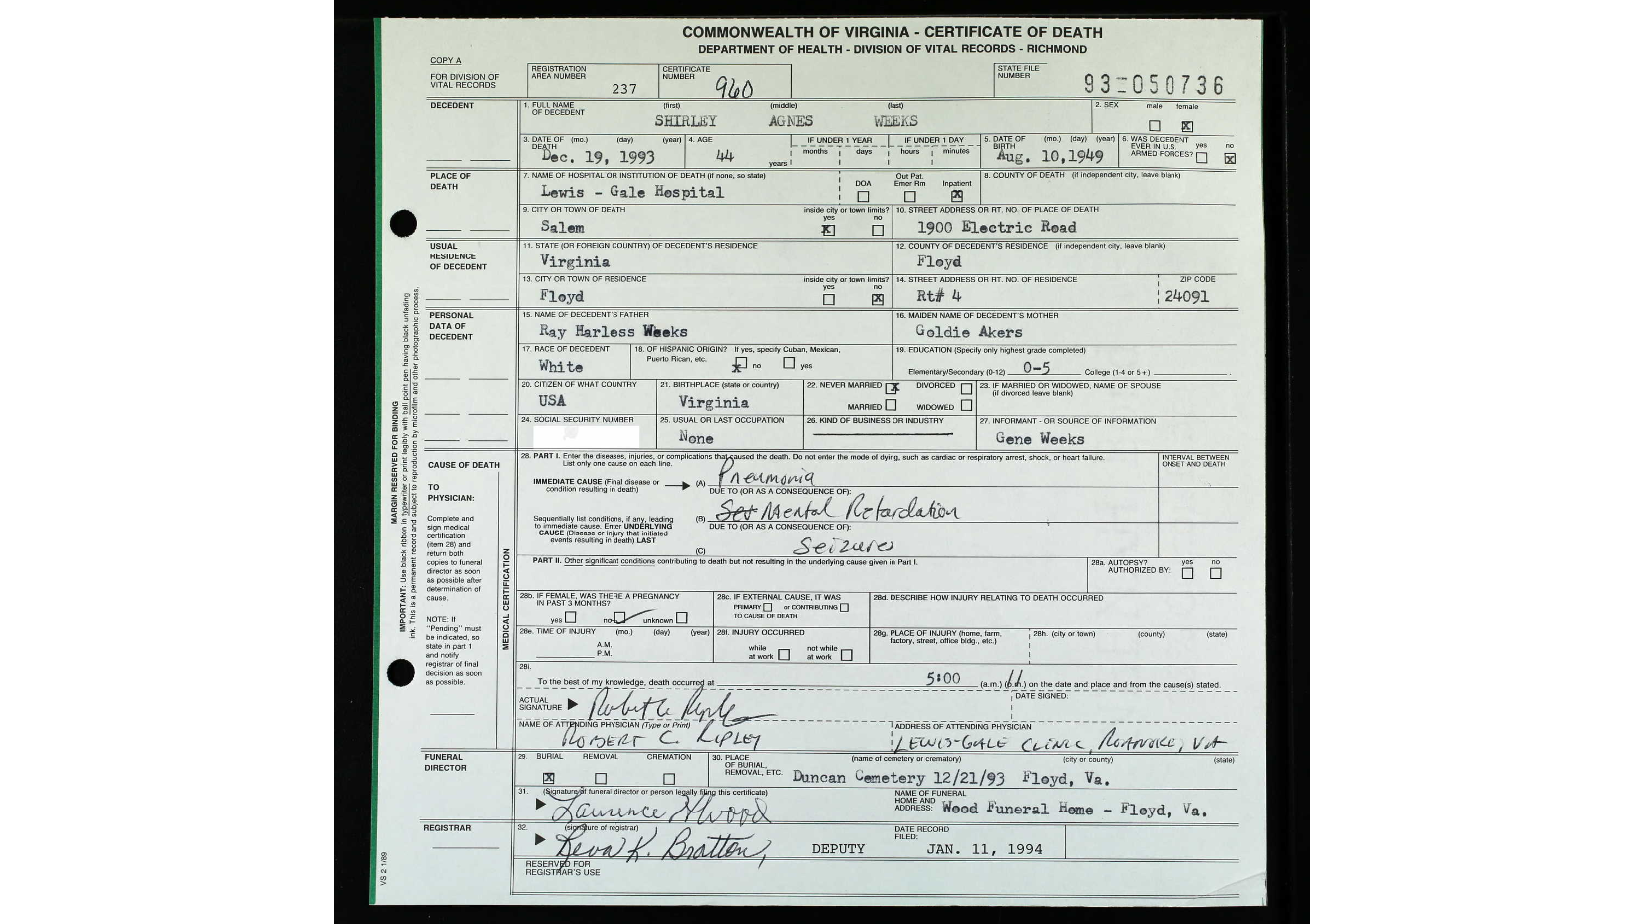 COMMONWEALTH OF VIRGINIA - CERTIFICATE OF DEATH
DEPARTMENT OF HEALTH - DIVISION OF VITAL RECORDS - RICHMOND
COPY A
FOR DIVISION OF VITAL RECORDS
REGISTRATION AREA NUMBER 237
CERTIFICATE NUMBER 960
STATE FILE NUMBER 93-050736
DECEDENT
1. FULL NAME OF DECEDENT (first) (middle) (last)
SHIRLEY AGNES WEEKS
2. SEX male female X
3. DATE OF DEATH (mo.) (day) (year) Dec. 19, 1993
4. AGE 44 years
IF UNDER 1 YEAR months days
IF UNDER 1 DAY hours minutes
5. DATE OF BIRTH (mo.) (day) (year) Aug. 10,1949
6. WAS DECEDENT EVER IN U.S. ARMED FORCES? yes no X
PLACE OF DEATH
7. NAME OF HOSPITAL OR INSTITUTION OF DEATH (if none, so state)
Lewis - Gale Hospital
DOA Out Pat. Emer Rm Inpatient X
8. COUNTY OF DEATH (if independent city, leave blank)
9. CITY OR TOWN OF DEATH Salem
inside city or town limits? yes X no
10. STREET ADDRESS OR RT. NO. OF PLACE OF DEATH
1900 Electric Road
USUAL RESIDENCE OF DECEDENT
11. STATE (OR FOREIGN COUNTRY) OF DECEDENT'S RESIDENCE
Virginia
12. COUNTY OF DECEDENT'S RESIDENCE (if independent city, leave blank)
Floyd
13. CITY OR TOWN OF RESIDENCE Floyd
inside city or town limits? yes no X
14. STREET ADDRESS OR RT. NO. OF RESIDENCE Rt# 4
ZIP CODE 24091
PERSONAL DATA OF DECEDENT
15. NAME OF DECEDENT'S FATHER
Ray Harless Weeks
16. MAIDEN NAME OF DECEDENT'S MOTHER
Goldie Akers
17. RACE OF DECEDENT White
18. OF HISPANIC ORIGIN? If yes, specify Cuban, Mexican, Puerto Rican, etc. X no yes
19. EDUCATION (Specify only highest grade completed)
Elementary/Secondary (0-12) 0-5 College (1-4 or 5+)
20. CITIZEN OF WHAT COUNTRY USA
21. BIRTHPLACE (state or country) Virginia
22. NEVER MARRIED X DIVORCED
MARRIED WIDOWED
23. IF MARRIED OR WIDOWED, NAME OF SPOUSE (if divorced leave blank)
24. SOCIAL SECURITY NUMBER
25. USUAL OR LAST OCCUPATION None
26. KIND OF BUSINESS OR INDUSTRY
27. INFORMANT - OR SOURCE OF INFORMATION
Gene Weeks
CAUSE OF DEATH
28. PART I. Enter the diseases, injuries, or complications that caused the death. Do not enter the mode of dying, such as cardiac or respiratory arrest, shock, or heart failure.
List only one cause on each line.
INTERVAL BETWEEN ONSET AND DEATH
IMMEDIATE CAUSE (Final disease or condition resulting in death) (A) Pneumonia
DUE TO (OR AS A CONSEQUENCE OF):
Sequentially list conditions, if any, leading to immediate cause. Enter UNDERLYING CAUSE (Disease or injury that initiated events resulting in death) LAST
(B) Mental Retardation
DUE TO (OR AS A CONSEQUENCE OF):
(C) Seizures
PART II. Other significant conditions contributing to death but not resulting in the underlying cause given in Part I.
28a. AUTOPSY? AUTHORIZED BY: yes no
28b. IF FEMALE, WAS THERE A PREGNANCY IN PAST 3 MONTHS?
yes no unknown
28c. IF EXTERNAL CAUSE, IT WAS
PRIMARY or CONTRIBUTING
TO CAUSE OF DEATH
28d. DESCRIBE HOW INJURY RELATING TO DEATH OCCURRED
28e. TIME OF INJURY (mo.) (day) (year)
A.M.
P.M.
28f. INJURY OCCURRED
while at work not while at work
28g. PLACE OF INJURY (home, farm, factory, street, office bldg., etc.)
28h. (city or town) (county) (state)
28i.
To the best of my knowledge, death occurred at 5:00 (a.m.) (p.m.) on the date and place and from the cause(s) stated.
ACTUAL SIGNATURE Robert C Ripley
DATE SIGNED:
NAME OF ATTENDING PHYSICIAN (Type or Print)
ROBERT C. RIPLEY
ADDRESS OF ATTENDING PHYSICIAN
LEWIS-GALE CLINIC, ROANOKE, VA
TO PHYSICIAN:
Complete and sign medical certification (item 28) and return both copies to funeral director as soon as possible after determination of cause.
NOTE: If "Pending" must be indicated, so state in part 1 and notify registrar of final decision as soon as possible.
MEDICAL CERTIFICATION
FUNERAL DIRECTOR
29. BURIAL X REMOVAL CREMATION
30. PLACE OF BURIAL, REMOVAL, ETC. (name of cemetery or crematory) (city or county) (state)
Duncan Cemetery 12/21/93 Floyd, Va.
31. (Signature of funeral director or person legally filing this certificate)
NAME OF FUNERAL HOME AND ADDRESS: Wood Funeral Home - Floyd, Va.
REGISTRAR
32. (signature of registrar)
Reva K. Bratton, DEPUTY
DATE RECORD FILED: JAN. 11, 1994
RESERVED FOR REGISTRAR'S USE
MARGIN RESERVED FOR BINDING
IMPORTANT: Use black ribbon in typewriter or print legibly with ball point pen having black unfading ink. This is a permanent record and subject to reproduction by microfilm and other photographic process.
VS 2 1/89